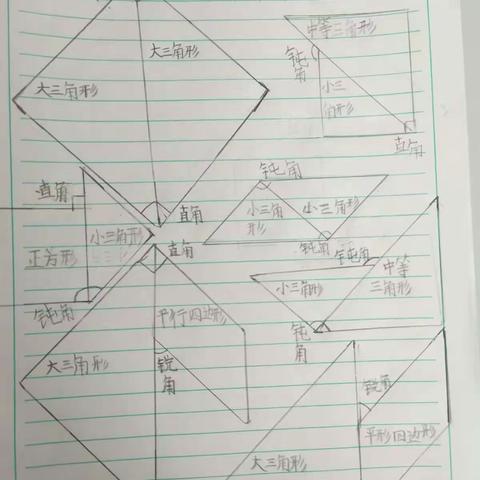 中等三角形
大三角形
钝角
大三角形
小三
角形
直角
钝角
直角
小三角
形
小三角形
直角
小三角形
正方形
直角
钝角
钝角
中等
三角形
小三角形
钝角
平行四边形
钝角
大三角形
锐角
锐角
平形四边形
大三角形